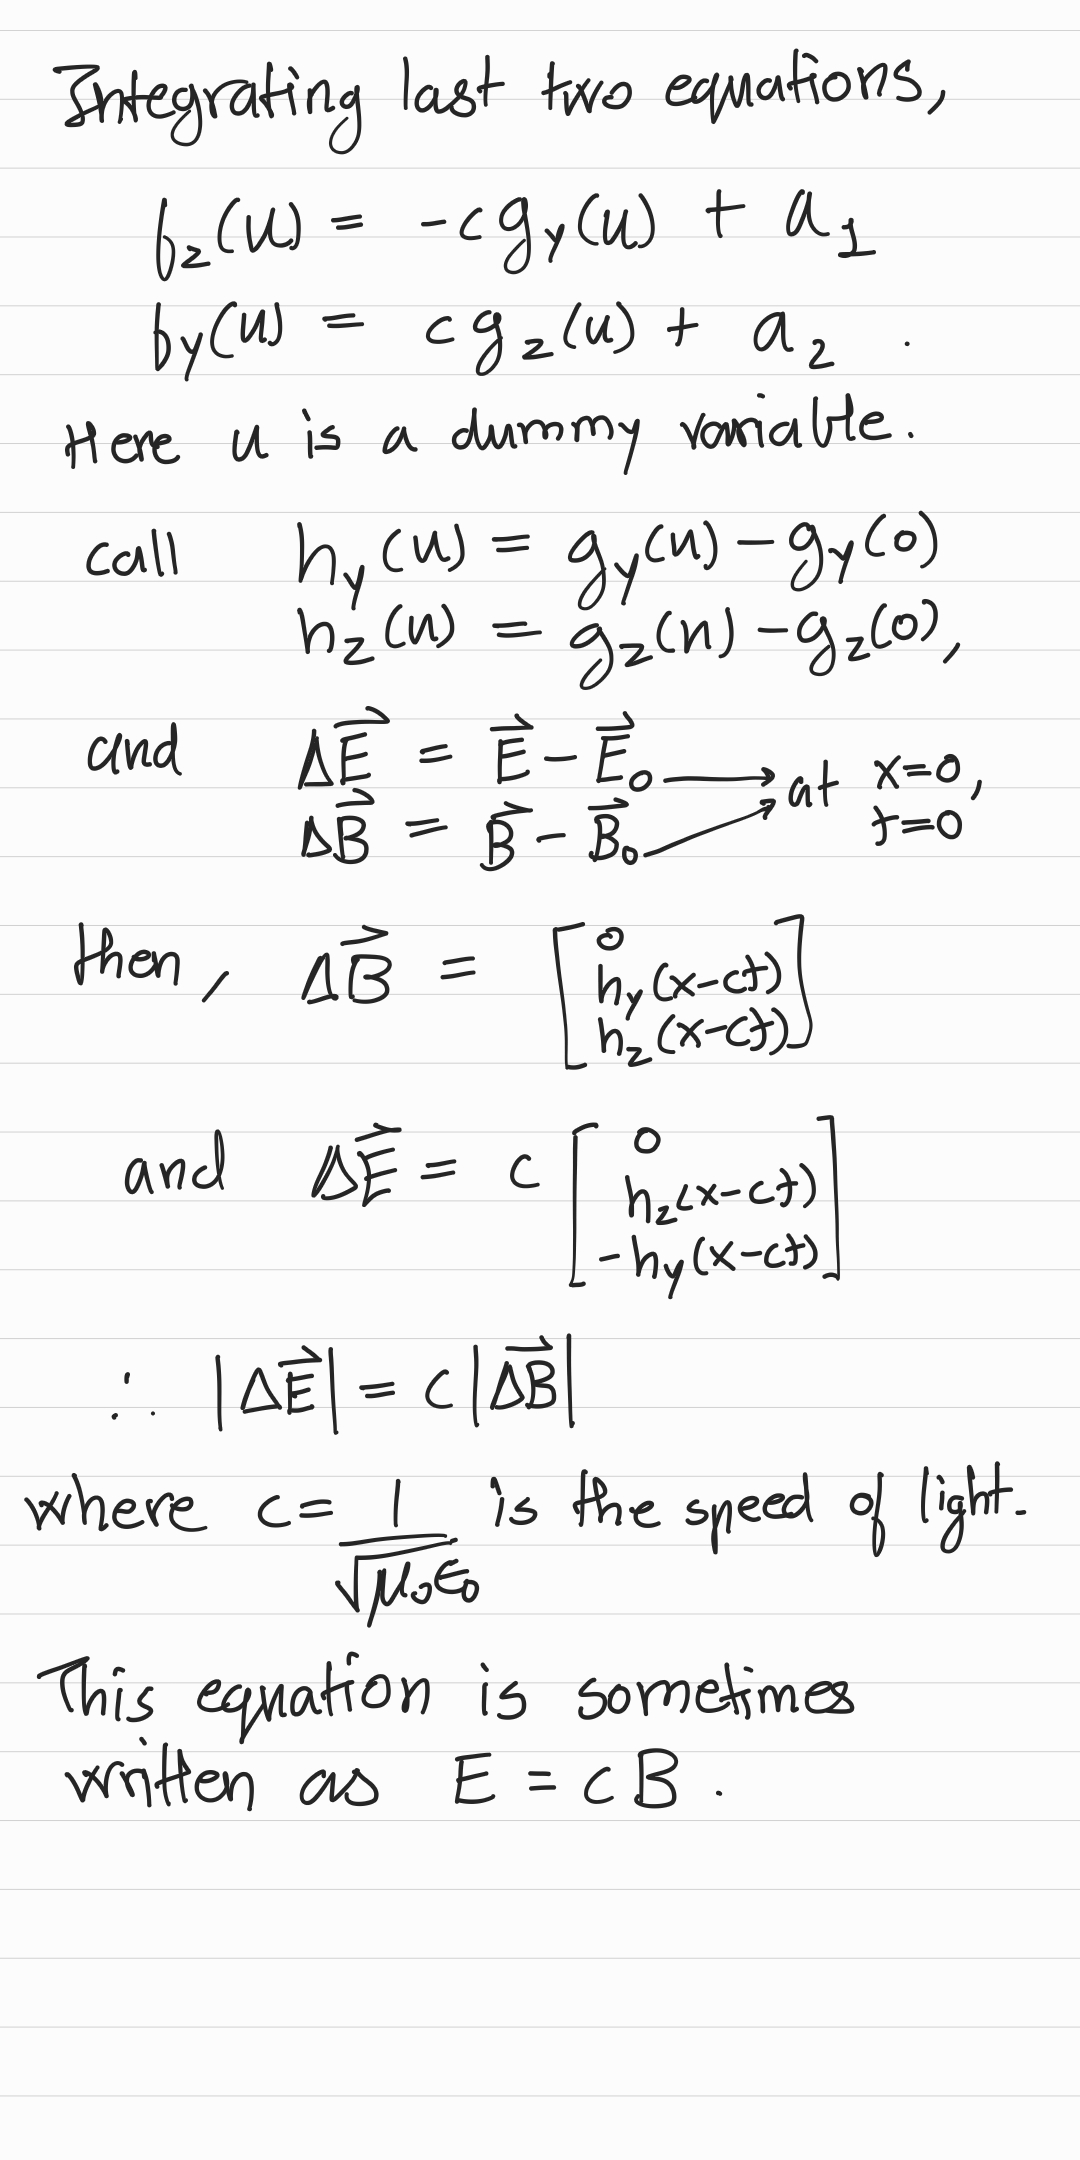 Integrating last two equations,
f_z(u) = -c g_y(u) + a_1
f_y(u) = c g_z(u) + a_2 .
Here u is a dummy variable.
call h_y(u) = g_y(u) - g_y(0)
h_z(u) = g_z(u) - g_z(0),
and ΔE⃗ = E⃗ - E⃗_0 → at x=0,
ΔB⃗ = B⃗ - B⃗_0 → t=0
then, ΔB⃗ = [0
h_y(x-ct)
h_z(x-ct)]
and ΔE⃗ = c [0
h_z(x-ct)
-h_y(x-ct)]
∴ |ΔE⃗| = c|ΔB⃗|
where c = 1/√μ_0ϵ_0 is the speed of light.
This equation is sometimes
written as E = cB .